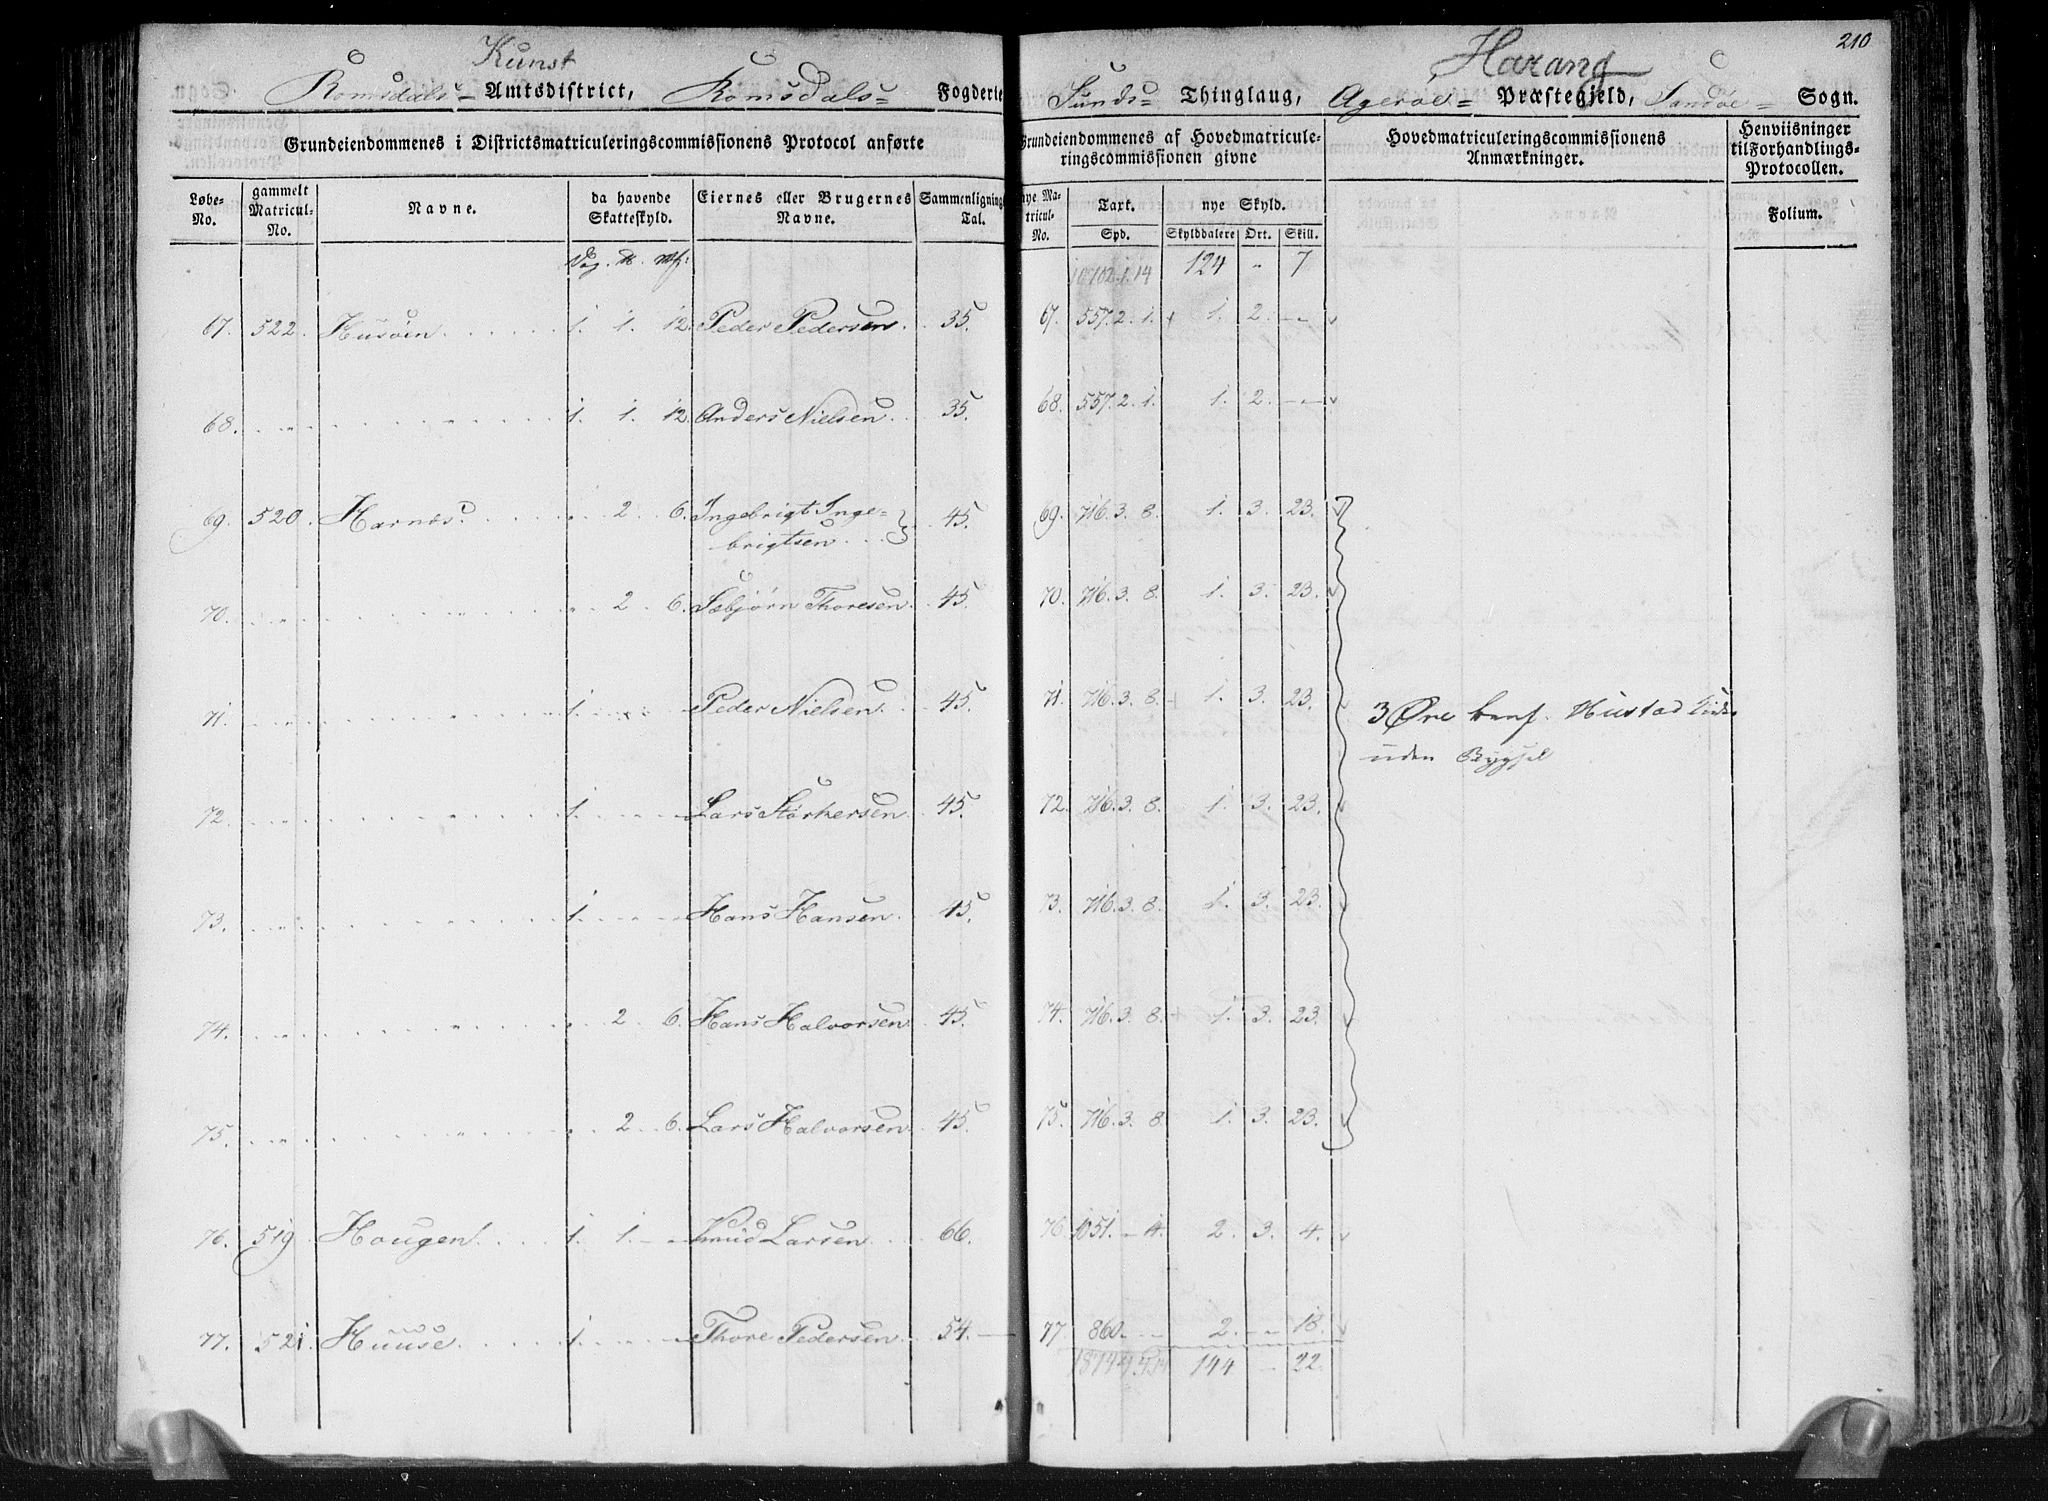 210
Kunst Harang
Romsdals Amtsdistrict, Romsdals Fogderie Sunds Thinglaug, Ageröe Præstegjeld, Sandöe Sogn.
Grundeiendommenes i Districtsmatriculeringscommissionens Protocol anførte
Grundeiendommenes af Hovedmatricule-
ringscommissionen givne
Hovedmatriculeringscommissionens
Anmærkninger.
Henviisninger
til Forhandlings-
Protocollen.
Løbe-
No.
gammelt
Matricul-
No.
Navne.
da havende
Skatteskyld.
Eiernes eller Brugernes
Navne.
Sammenlignings
Tal.
nye Ma-
tricul-
No.
Taxt.
Spd.
nye Skyld.
Skylddalere Ort. Skill.
Folium.
10702.1.14 124 - 7
67. 522. Husöen 1. 1. 12. Peder Pedersen. 35. 67. 557.2.1. + 1. 2. -
68. 1. 1. 12. Anders Nielsen 35. 68. 557.2.1. 1. 2. -
69. 520. Harnæs. 2. 6. Ingebrigt Inge-
brigtsen 45. 69. 716.3.8. 1. 3. 23.
70. 2. 6. Sæbjørn Thoresen. 45. 70. 716.3.8. 1. 3. 23.
71. 1. Peder Nielsen. 45. 71. 716.3.8. + 1. 3. 23. 3 Øre Hustad
uden Bygsel
72. 1. Lars Störkersen. 45. 72. 716.3.8. 1. 3. 23.
73. 1. Hans Hansen. 45. 73. 716.3.8. 1. 3. 23.
74. 2. 6. Hans Halvorsen. 45. 74. 716.3.8. + 1. 3. 23.
75. 2. 6. Lars Halvorsen. 45. 75. 716.3.8. 1. 3. 23.
76. 519. Hougen. 1. 1. - Knud Larsen 66. 76. 1051. - 4. 2. 3. 4.
77. 521. Huuse. 1. Thore Pedersen. 54. 77. 860. - 2. - 18.
144 - 22.